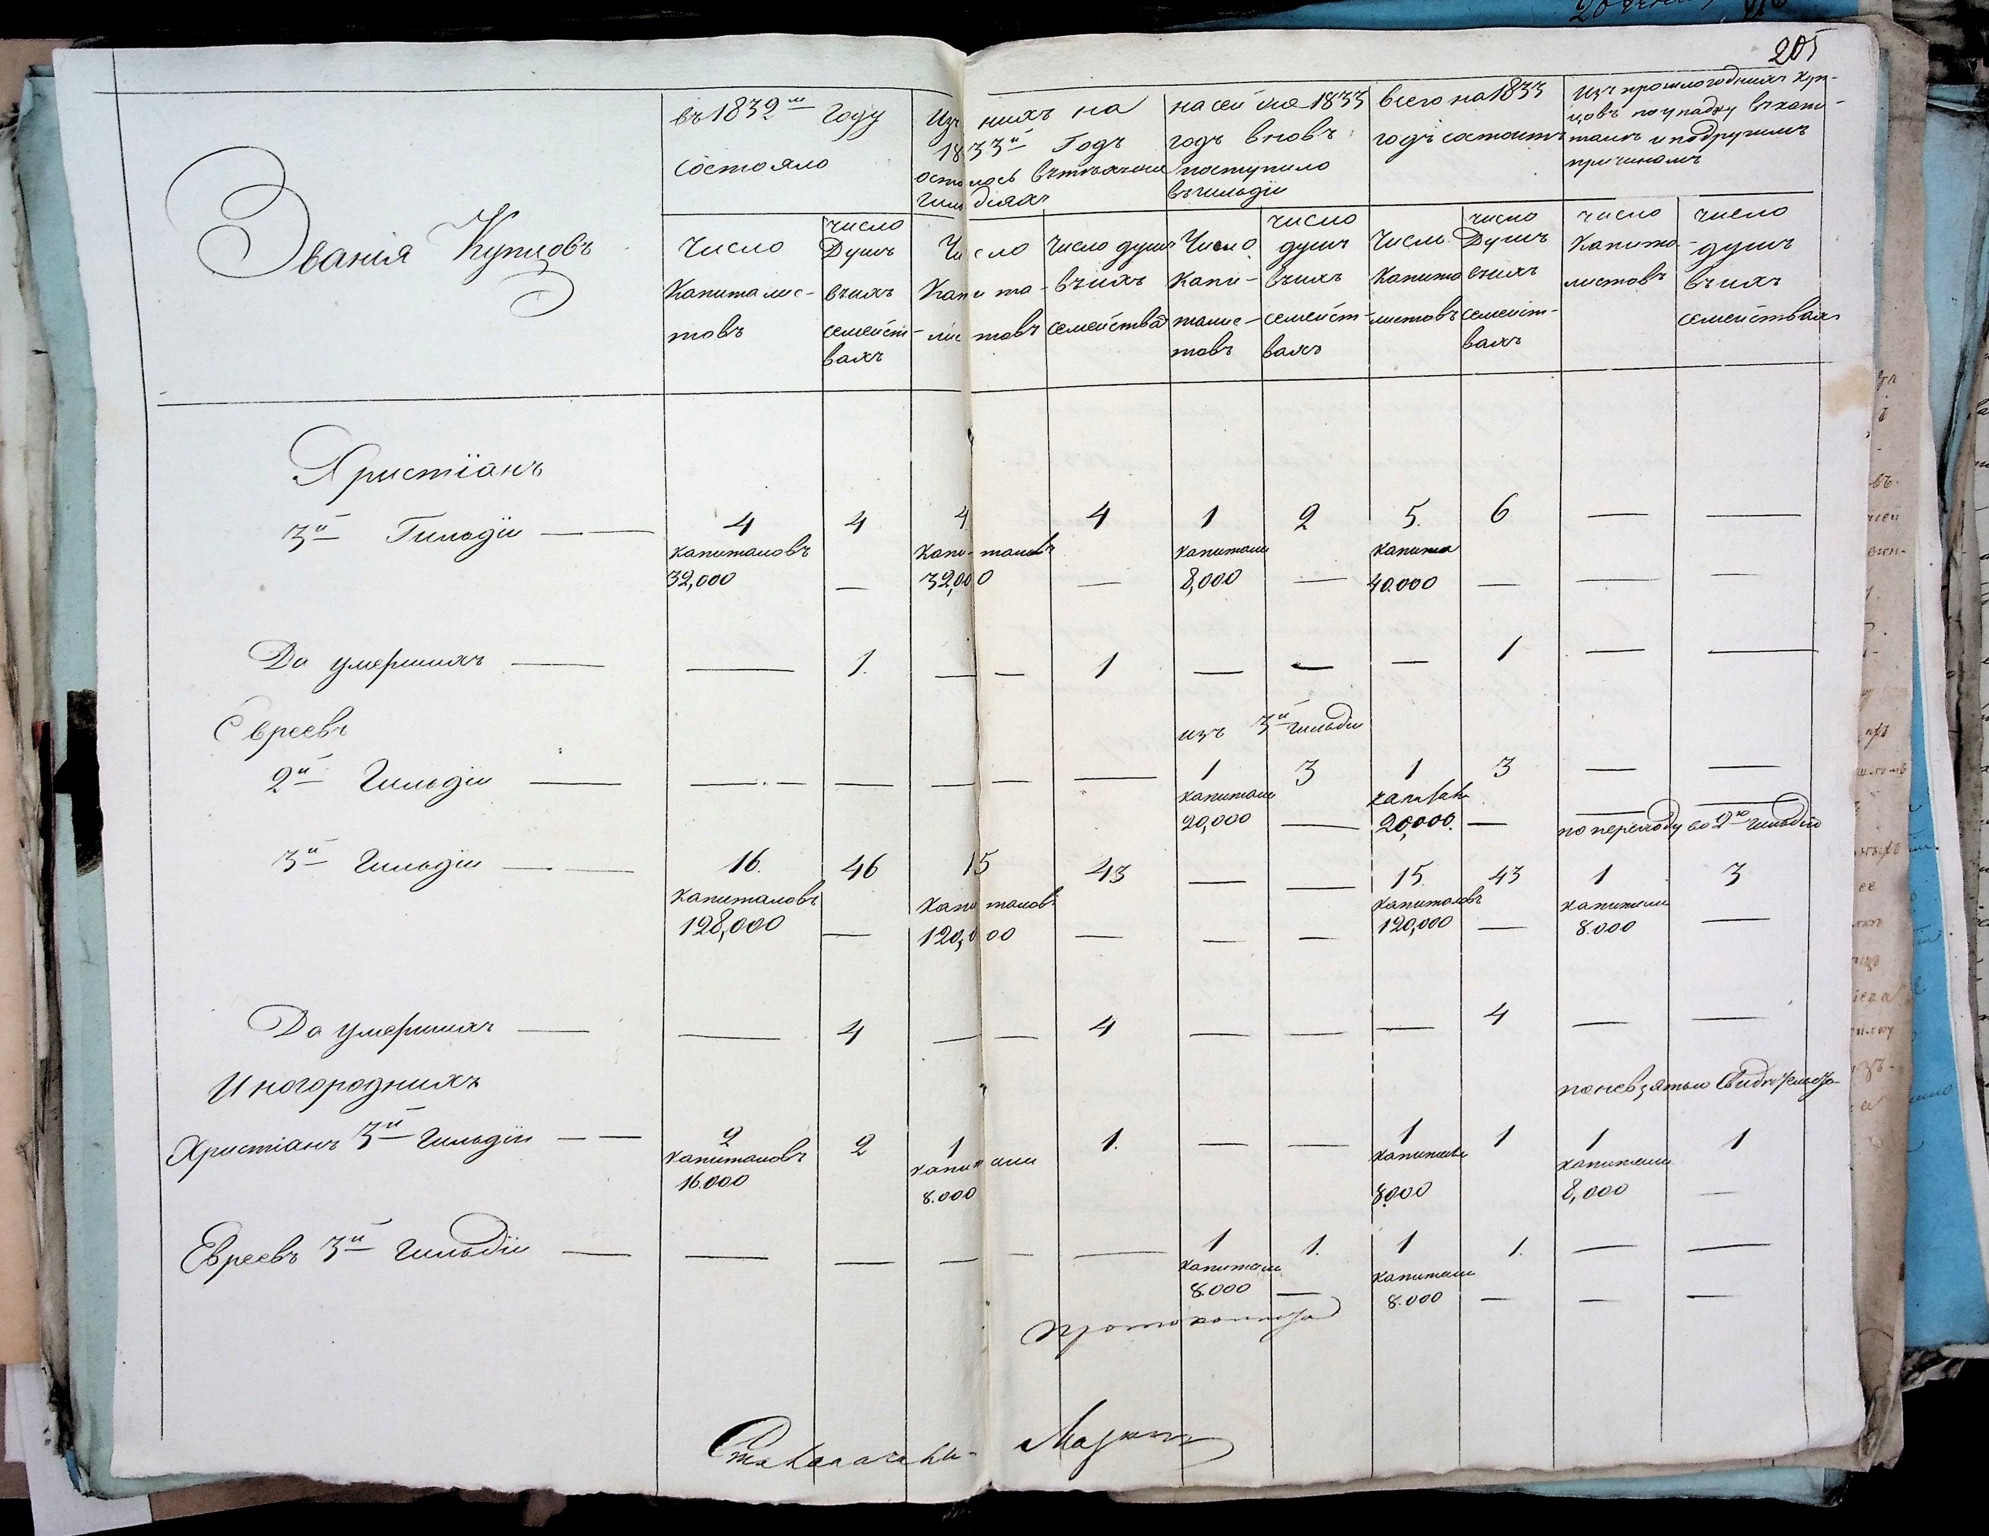 205
въ 1832м Году
состояло
Изъ нихъ на
1833й Годъ
осталось въ тѣхъ же
Гильдіяхъ
на сей же 1833
годъ вновь
поступило
въ гильдіи
всего на 1833
годъ состоитъ
Изъ прошлогоднихъ куп-
цовъ по упадку въ капи-
талѣ и по другимъ
причинамъ
Званія Купцовъ
Число
Капиталис-
товъ
число
Душъ
въ ихъ
семейст-
вахъ
Число
Капита-
листовъ
Число душъ
въ ихъ
семействахъ
Число
Капи-
талис-
товъ
число
душъ
въ ихъ
семейст-
вахъ
Число
Капита
листовъ
число
Душъ
въ ихъ
семейст-
вахъ
число
Капита-
листовъ
число
душъ
въ ихъ
семействахъ
Христіанъ
3й Гильдіи — — 4 4 4 4 1 2 5. 6 — —
капиталовъ капиталовъ капиталъ капита
32,000 — 32,000 — 8,000 — 40.000 — — —
Да умершихъ — — 1. — — 1 — — — 1 — —
Евреевъ
изъ 3й гильдіи
2й Гильдіи — — — — — — 1 3 1 3 — —
капиталъ
20,000 — 20,000. — по переходу во 2ю гильдію
3й Гильдіи — — 16. 46 15 43 — — 15. 43 1 3
капиталовъ капиталовъ капиталовъ капиталъ
128,000 — 120,000 — — — 120,000 — 8.000 —
Да умершихъ — — 4 — — 4 — — — 4 — —
Иногороднихъ
по невзятью Свидѣтельства
Христіанъ 3й Гильдіи — — 2 2 1 1. — — 1 1 1 1
капиталовъ капиталъ капиталъ капиталъ
16.000 8.000 8,000 8,000 —
Евреевъ 3й гильдіи — — — — — — 1 1. 1 1. — —
капиталъ капиталъ
8.000 — 8.000 — — —